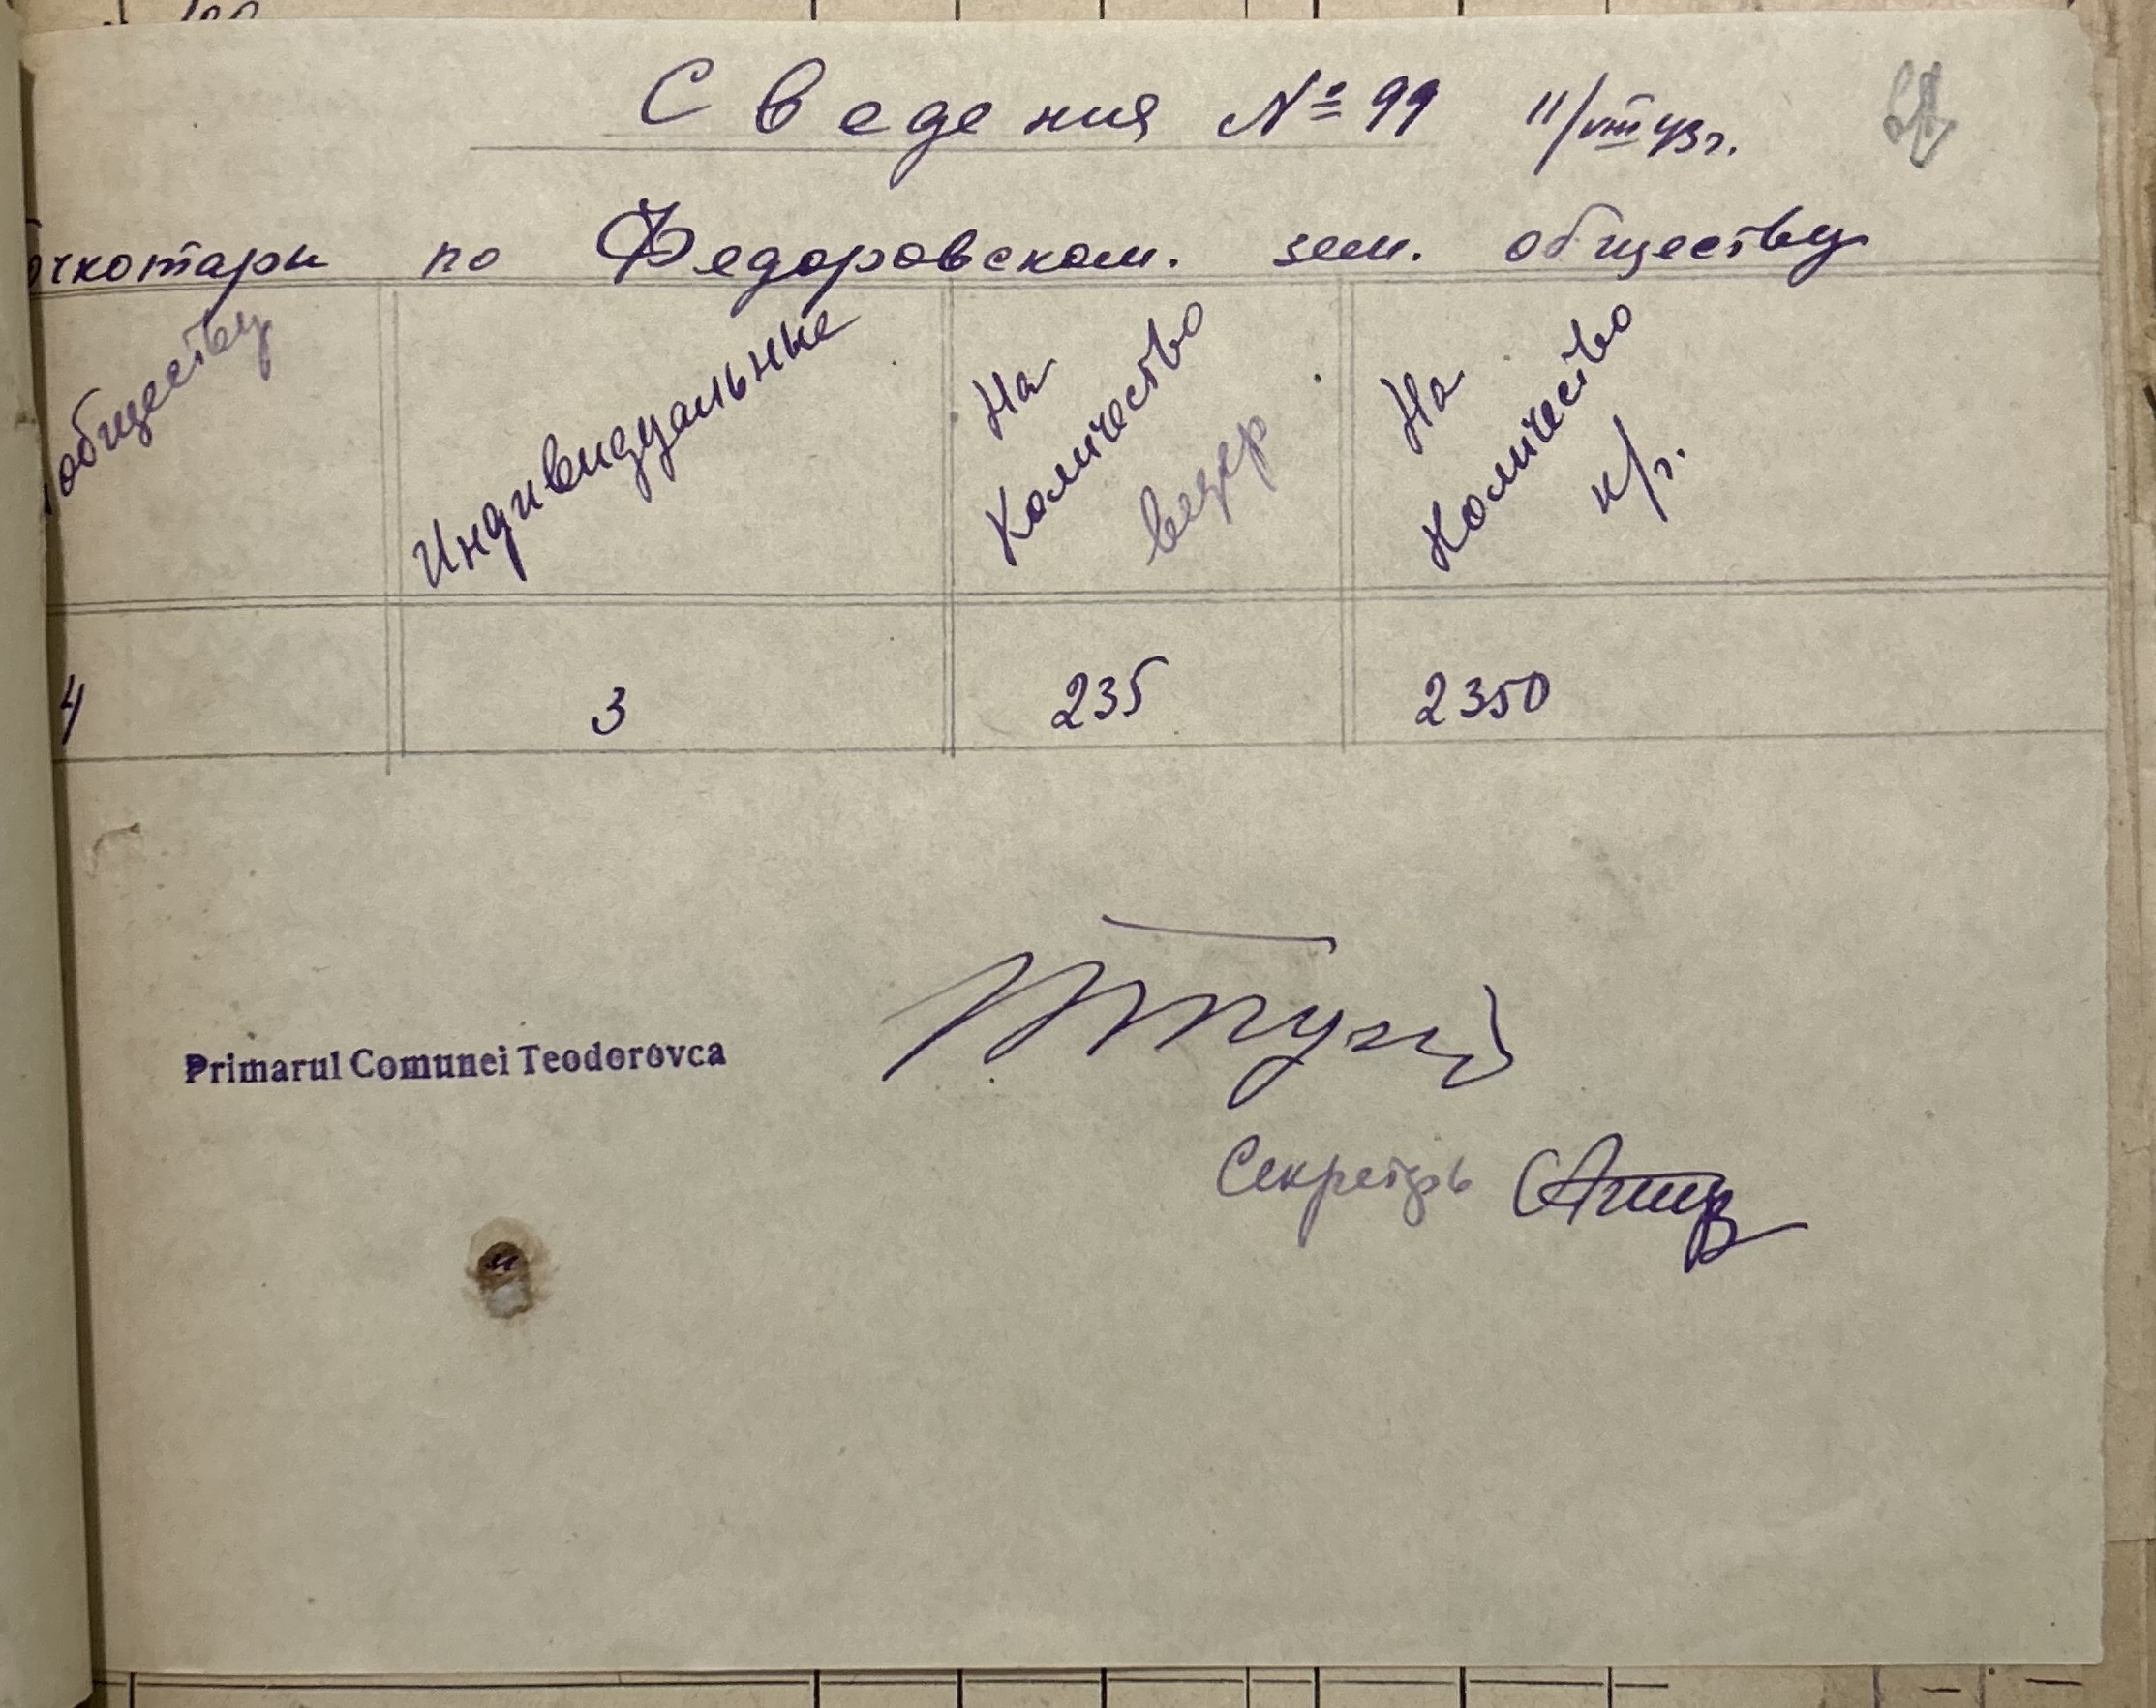 Сведения № 99 11/VIII 43 г.
очкотары по Федоровском. зем. обществу
обществу
Индивидуальные
На
Количество
ведер
На
Количество
к/г.
4 3 235 2350
Primarul Comunei Teodorovca
Секретарь